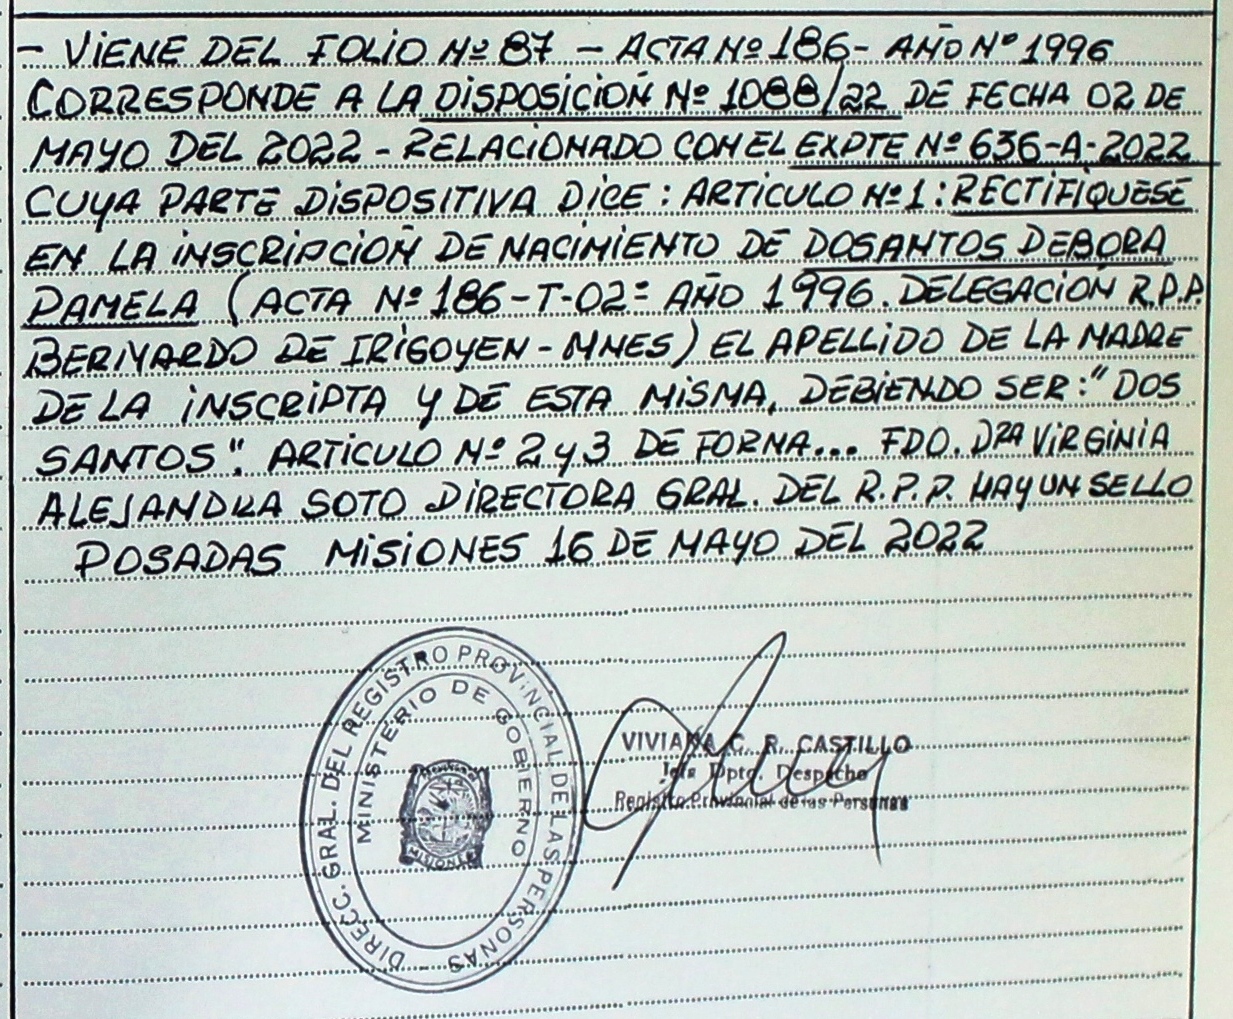 - VIENE DEL FOLIO Nº 87 - ACTA Nº 186- AÑO Nº 1996
CORRESPONDE A LA DISPOSICIÓN Nº 1088/22 DE FECHA 02 DE
MAYO DEL 2022 - RELACIONADO CON EL EXPTE Nº 636-A-2022
CUYA PARTE DISPOSITIVA DICE: ARTICULO Nº 1: RECTIFIQUESE
EN LA INSCRIPCIÓN DE NACIMIENTO DE DOSANTOS DEBORA
PAMELA (ACTA Nº 186-T-02º AÑO 1996. DELEGACIÓN R.P.P.
BERNARDO DE IRIGOYEN - MNES) EL APELLIDO DE LA MADRE
DE LA INSCRIPTA Y DE ESTA MISMA, DEBIENDO SER: "DOS
SANTOS". ARTICULO Nº 2 y 3 DE FORMA... FDO. DRA VIRGINIA
ALEJANDRA SOTO DIRECTORA GRAL. DEL R.P.P. HAY UN SELLO
POSADAS MISIONES 16 DE MAYO DEL 2022
DIRECC. GRAL. DEL REGISTRO PROVINCIAL DE LAS PERSONAS
MINISTERIO DE GOBIERNO
MISIONES
VIVIANA C. R. CASTILLO
Jefa Dpto. Despacho
Registro Provincial de las Personas